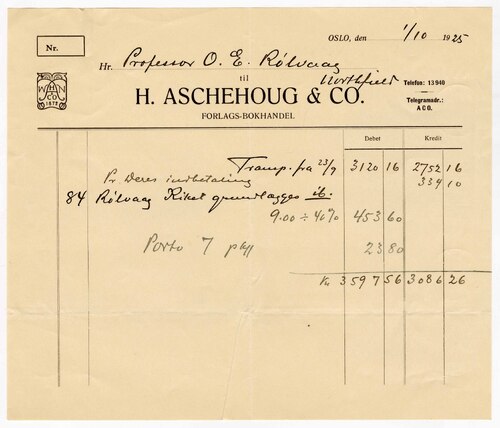 Nr.
OSLO, den 1/10 1925
Hr. Professor O. E. Rölvaag
Northfield
til
H. ASCHEHOUG & CO.
FORLAGS-BOKHANDEL
W H N
& CO
1872
Telefon: 13 940
Telegramadr.:
ACO.
Debet Kredit
Transp. fra 23/9 3120 16 2752 16
Pr Deres indbetaling 334 10
84 Rölvaag Riket grundlægges ib.
9.00 ÷ 40% 453 60
Porto 7 pkg 23 80
Kr 3597 56 3086 26